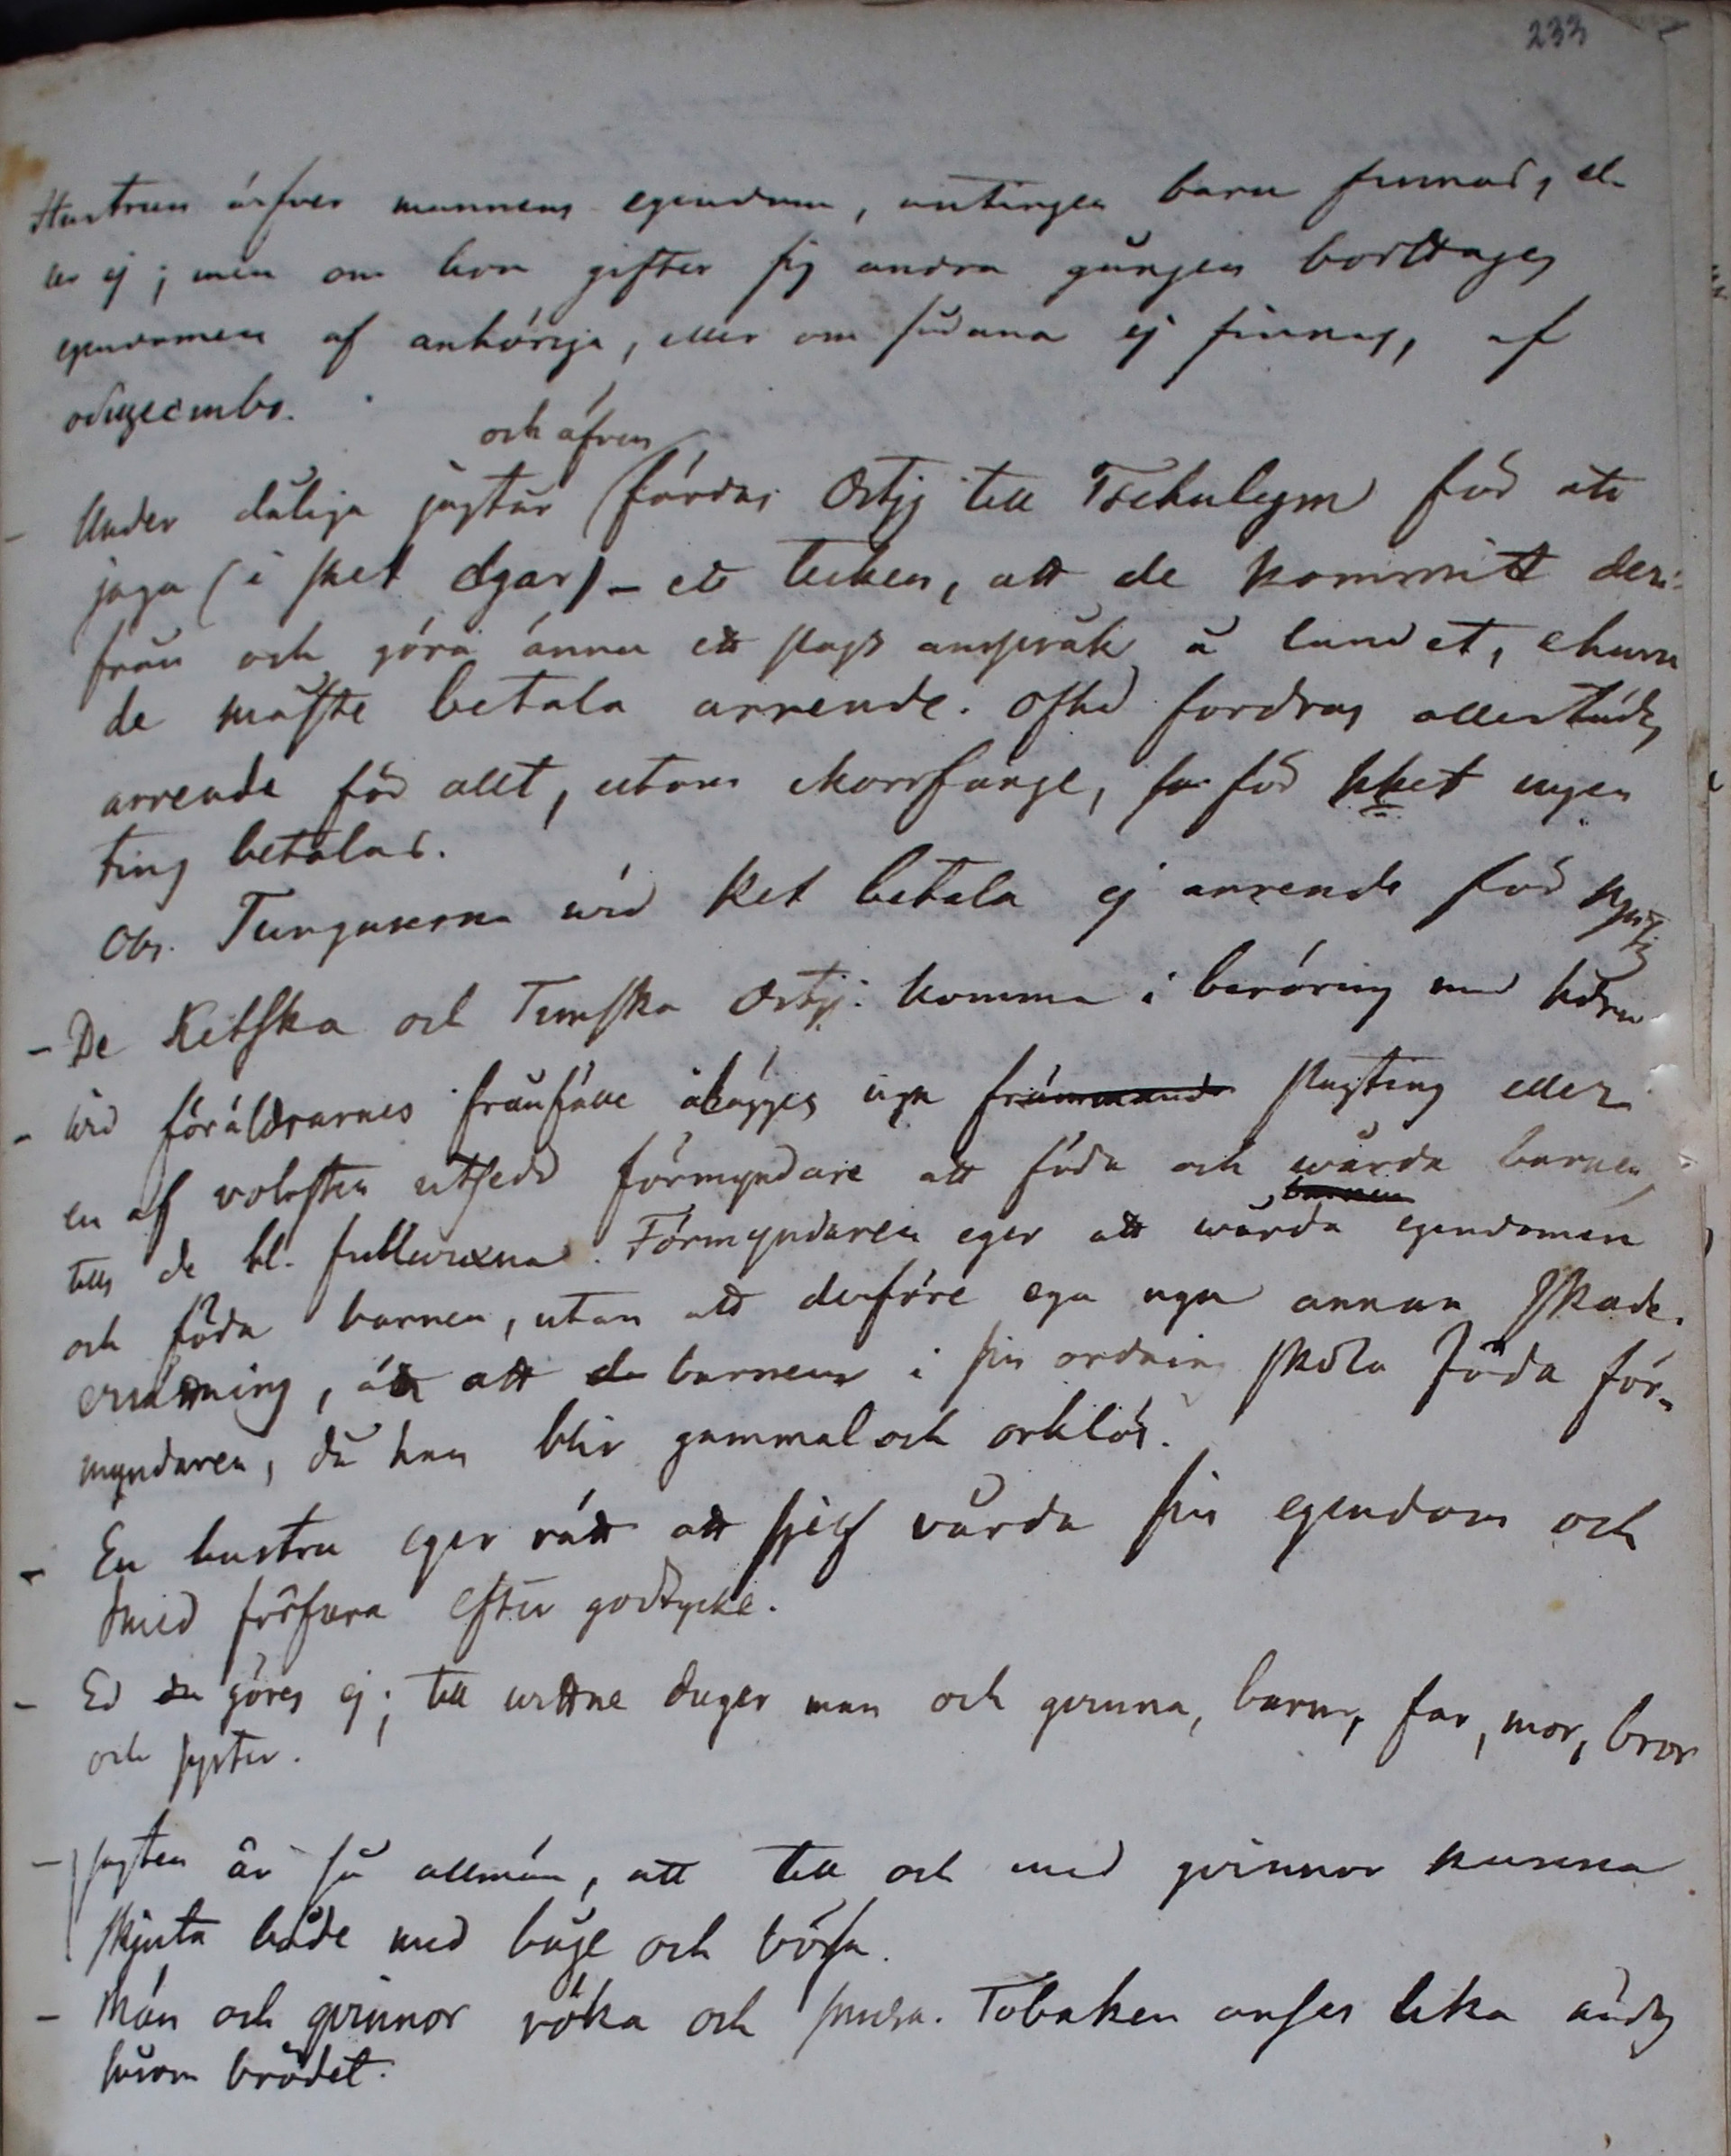 233
Hustrun ärfver mannens egendom, antingen barn finnas, el-
ler ej; men om hon gifter sig andra gången borttages
egendomen af anhöriga, eller om sådana ej finnas, af
общество.
och äfven
- Under dåliga jagtår färdas Ostj till Tschulym för att
jaga (i sht elgar) - ett tecken, att de kommit der-
ifrån och göra ännu ett slags anspråk å landet, ehuru
de måste betala arrende. fordras allestädes
arrende för allt, utom ekorrfånge, för hket ingen
ting betalas.
Obs. Tunguserna wid Ket betala ej arrende för
- De Ketska och Timska Ostj. komma i beröring med
- Wid föräldrarnes frånfälle ålägges ngn främmande slägting eller
en af volosten utsedd förmyndare att föda och wårda barnen,
barnen
tills de bl. fullwuxna. Förmyndaren eger att wårda egendomen
och föda barnen, utan att derföre ega ngn annan skade-
ersättning, än att de barnen i sin ordning skola föda för-
myndaren, då han blir gammal och orklös.
- En hustru eger rätt att sjelf vårda sin egendom och
dmed förfara efter godtycke.
- Ed göres ej; till wittne duger man och qvinna, barn, far, mor, bror
och syster.
- Jagten är så allmän, att till och med qvinnor kunna
skjuta både med båge och bössa.
- Män och qvinnor röka och snusa. Tobaken anses lika nödig
såsom brödet.